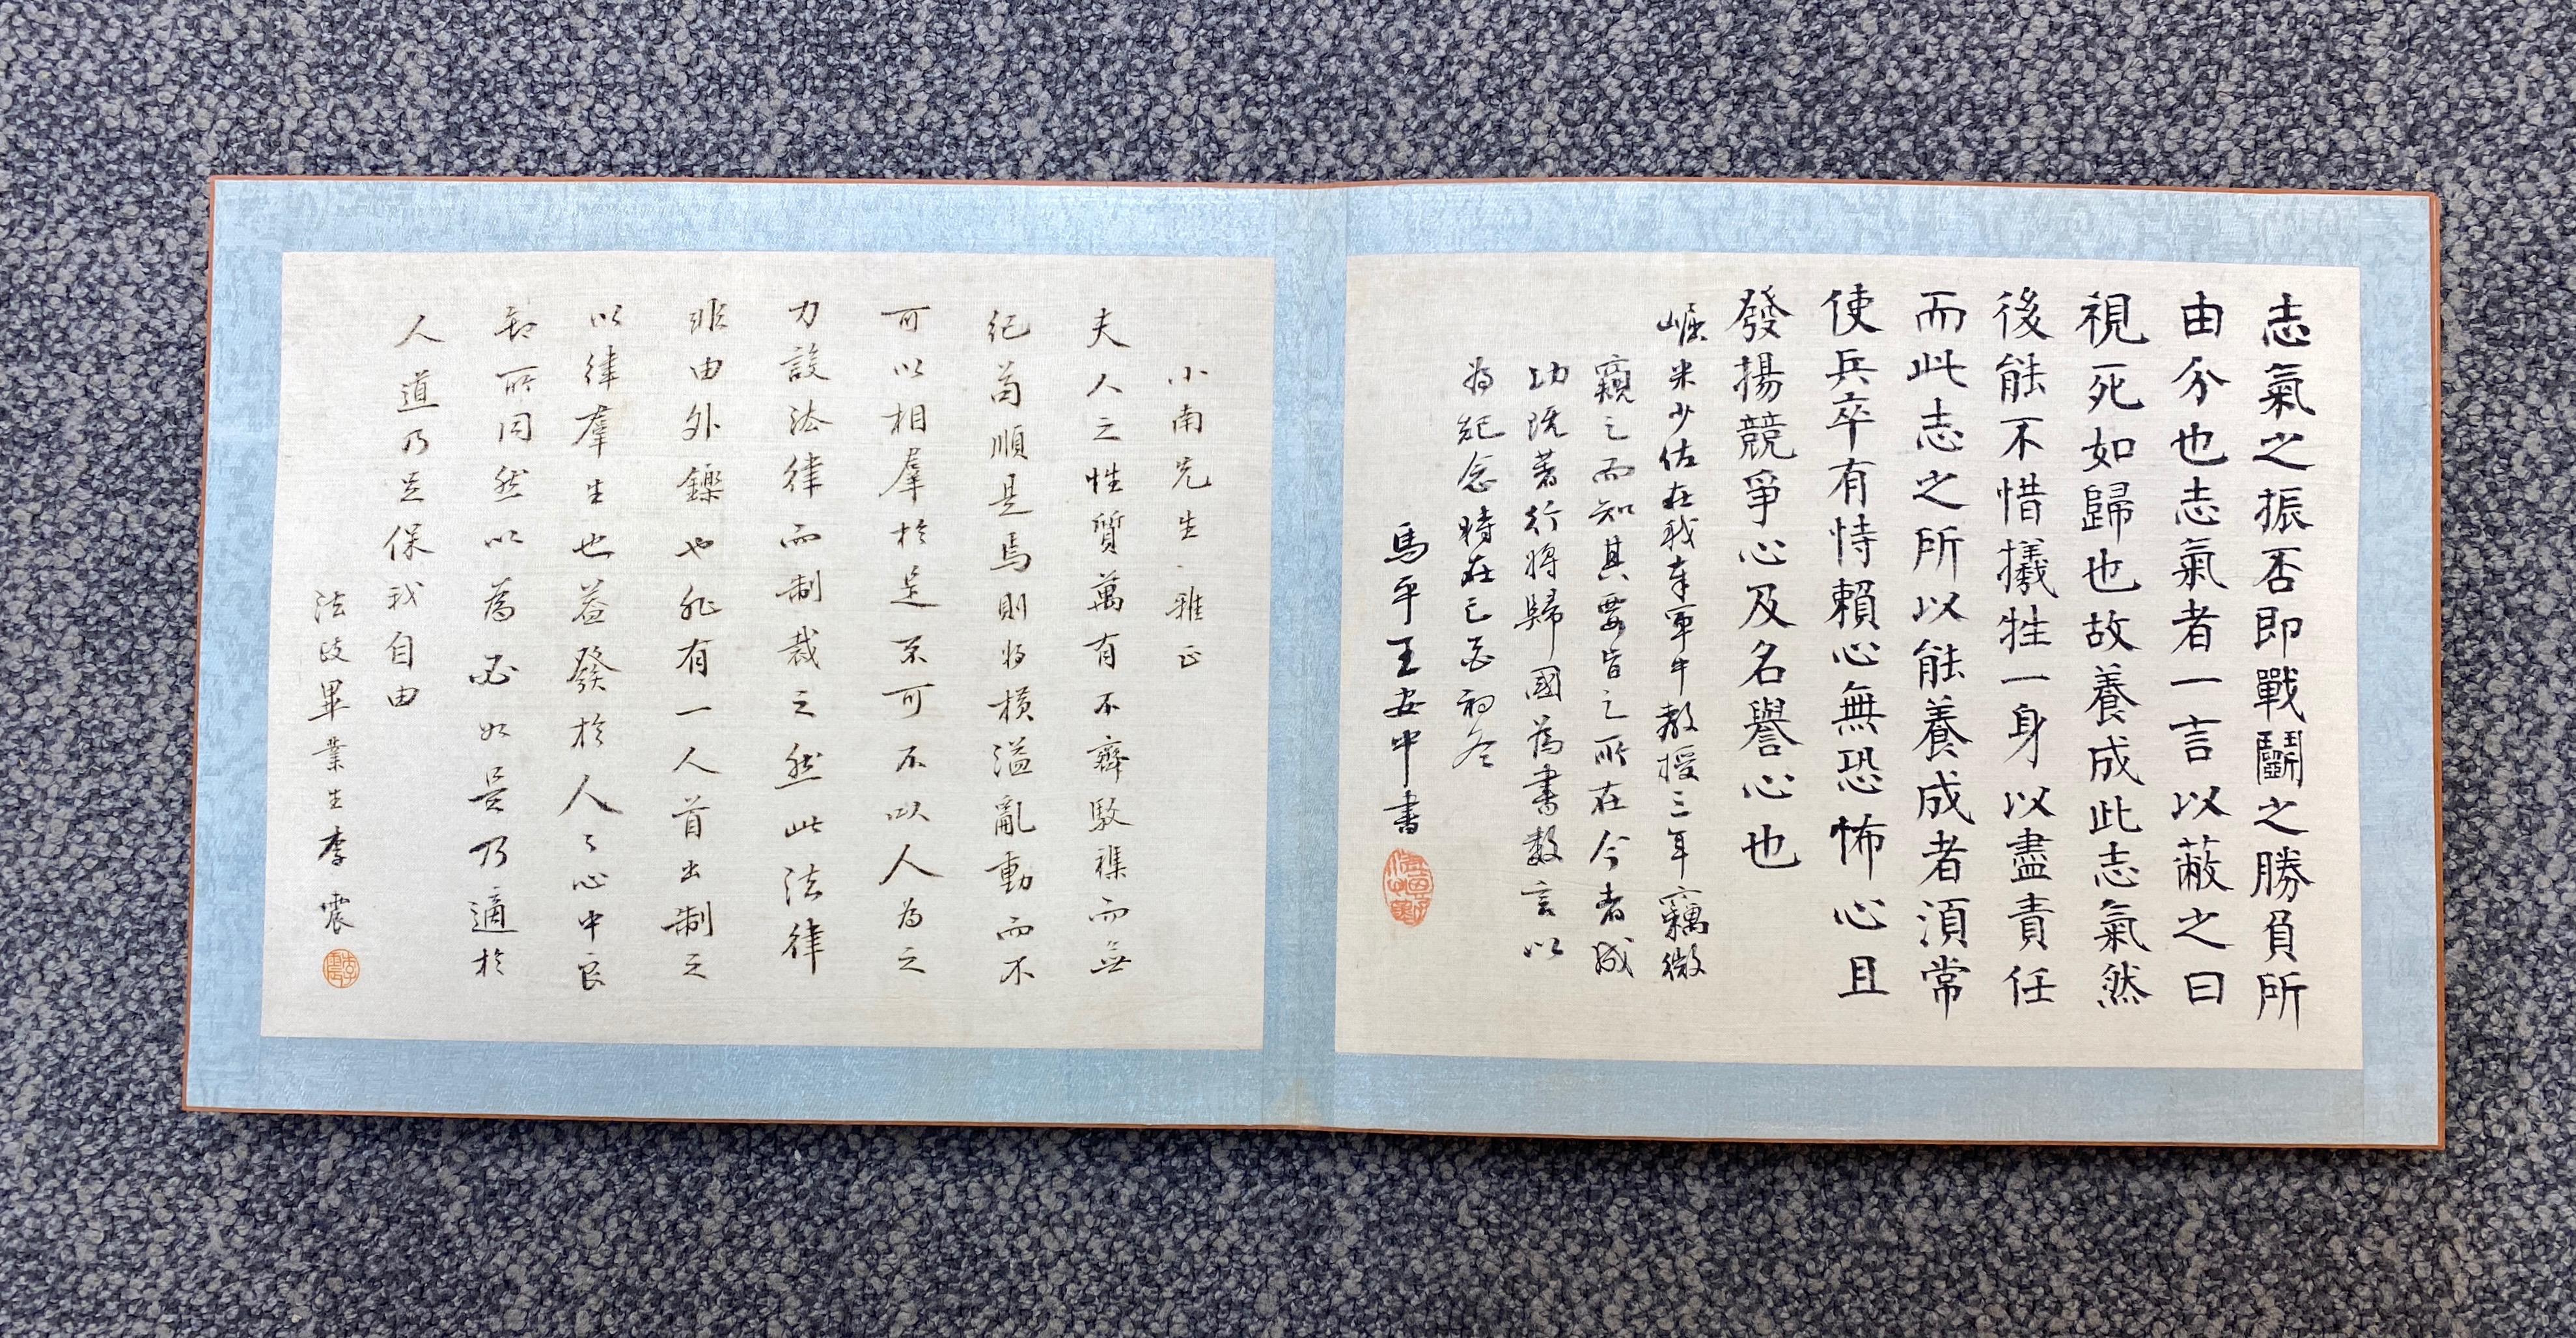 志氣之振否即戰鬭之勝負所
由分也志氣者一言以蔽之曰
視死如歸也故養成此志氣然
後能不惜犠牲一身以盡責任
而此志之所以能養成者須常
使兵卒有恃賴心無恐怖心且
發揚競爭心及名譽心也
崛米少佐在我奉軍中教授三年竊微
窺之而知其要旨之所在今者成
功既著行將歸國為書數言以
為紀念時在己酉初冬
馬平王安中書
小南先生 雅正
夫人之性質萬有不齊駁襍而無
紀苟順是焉則將横溢亂動而不
可以相羣於是不可不以人為之
力設法律而制裁之然此法律
非由外鑠也非有一人首出制之
以律羣生也蓋發於人々心中良
知所同然以為必如是乃適於
人道乃足保我自由
法政畢業生李震